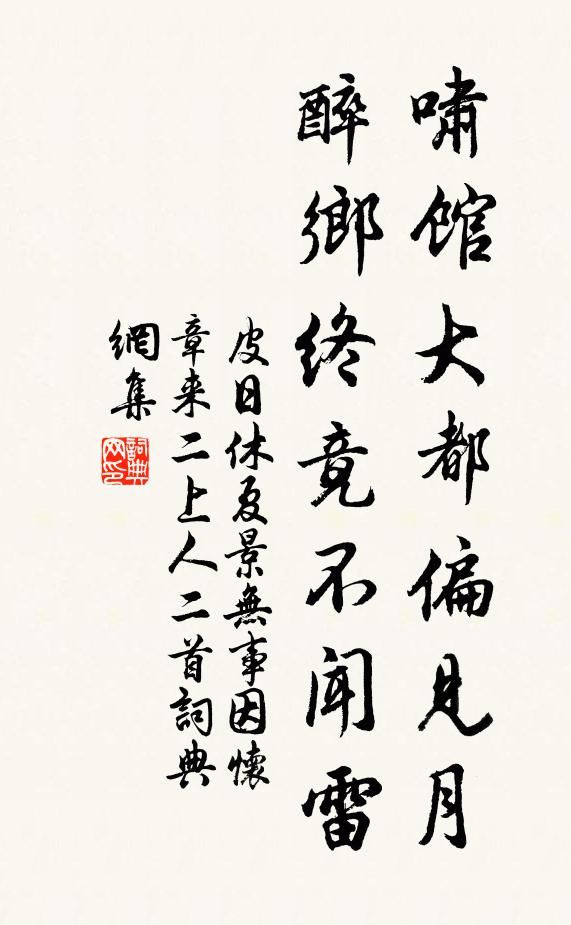 嘯館大都偏見月
醉鄉終竟不聞雷
皮日休夏景無事因懷
章来二上人二首詞典
網集
詞典網印